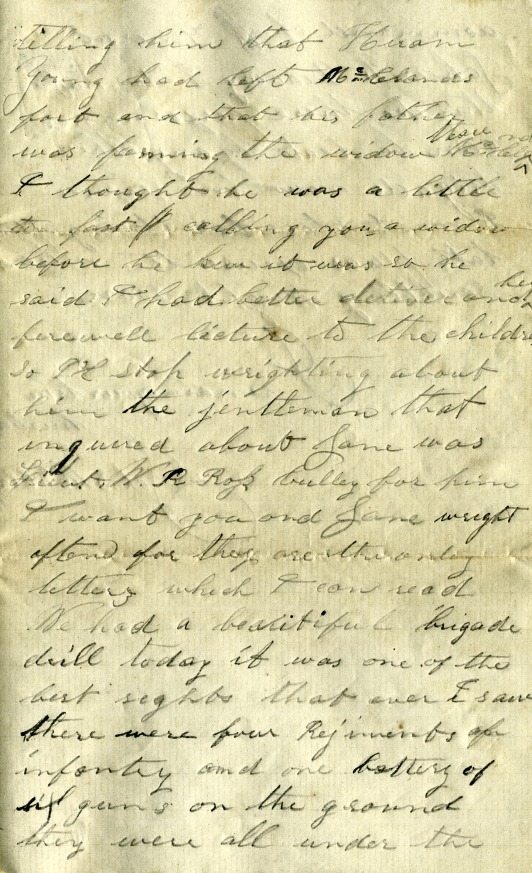 telling him that Hiram
Young had left
fort and that his father
was farming the widow
I thought he was a little
too fast calling you a widow
before he knew it was so he
said I had better deliver
farewell licture to the children
so I'll stop wrighting about
him the jentleman that
inquired about Jane was
Lieut. W. R Ross bulley for him
I want you and Jane wright
oftend for they are the only
letters which I can read
We had a beautiful brigade
drill today it was one of the
best sights that ever I saw
there were four Rejiments of
infantry and one battery of
six guns on the ground
they were all under the